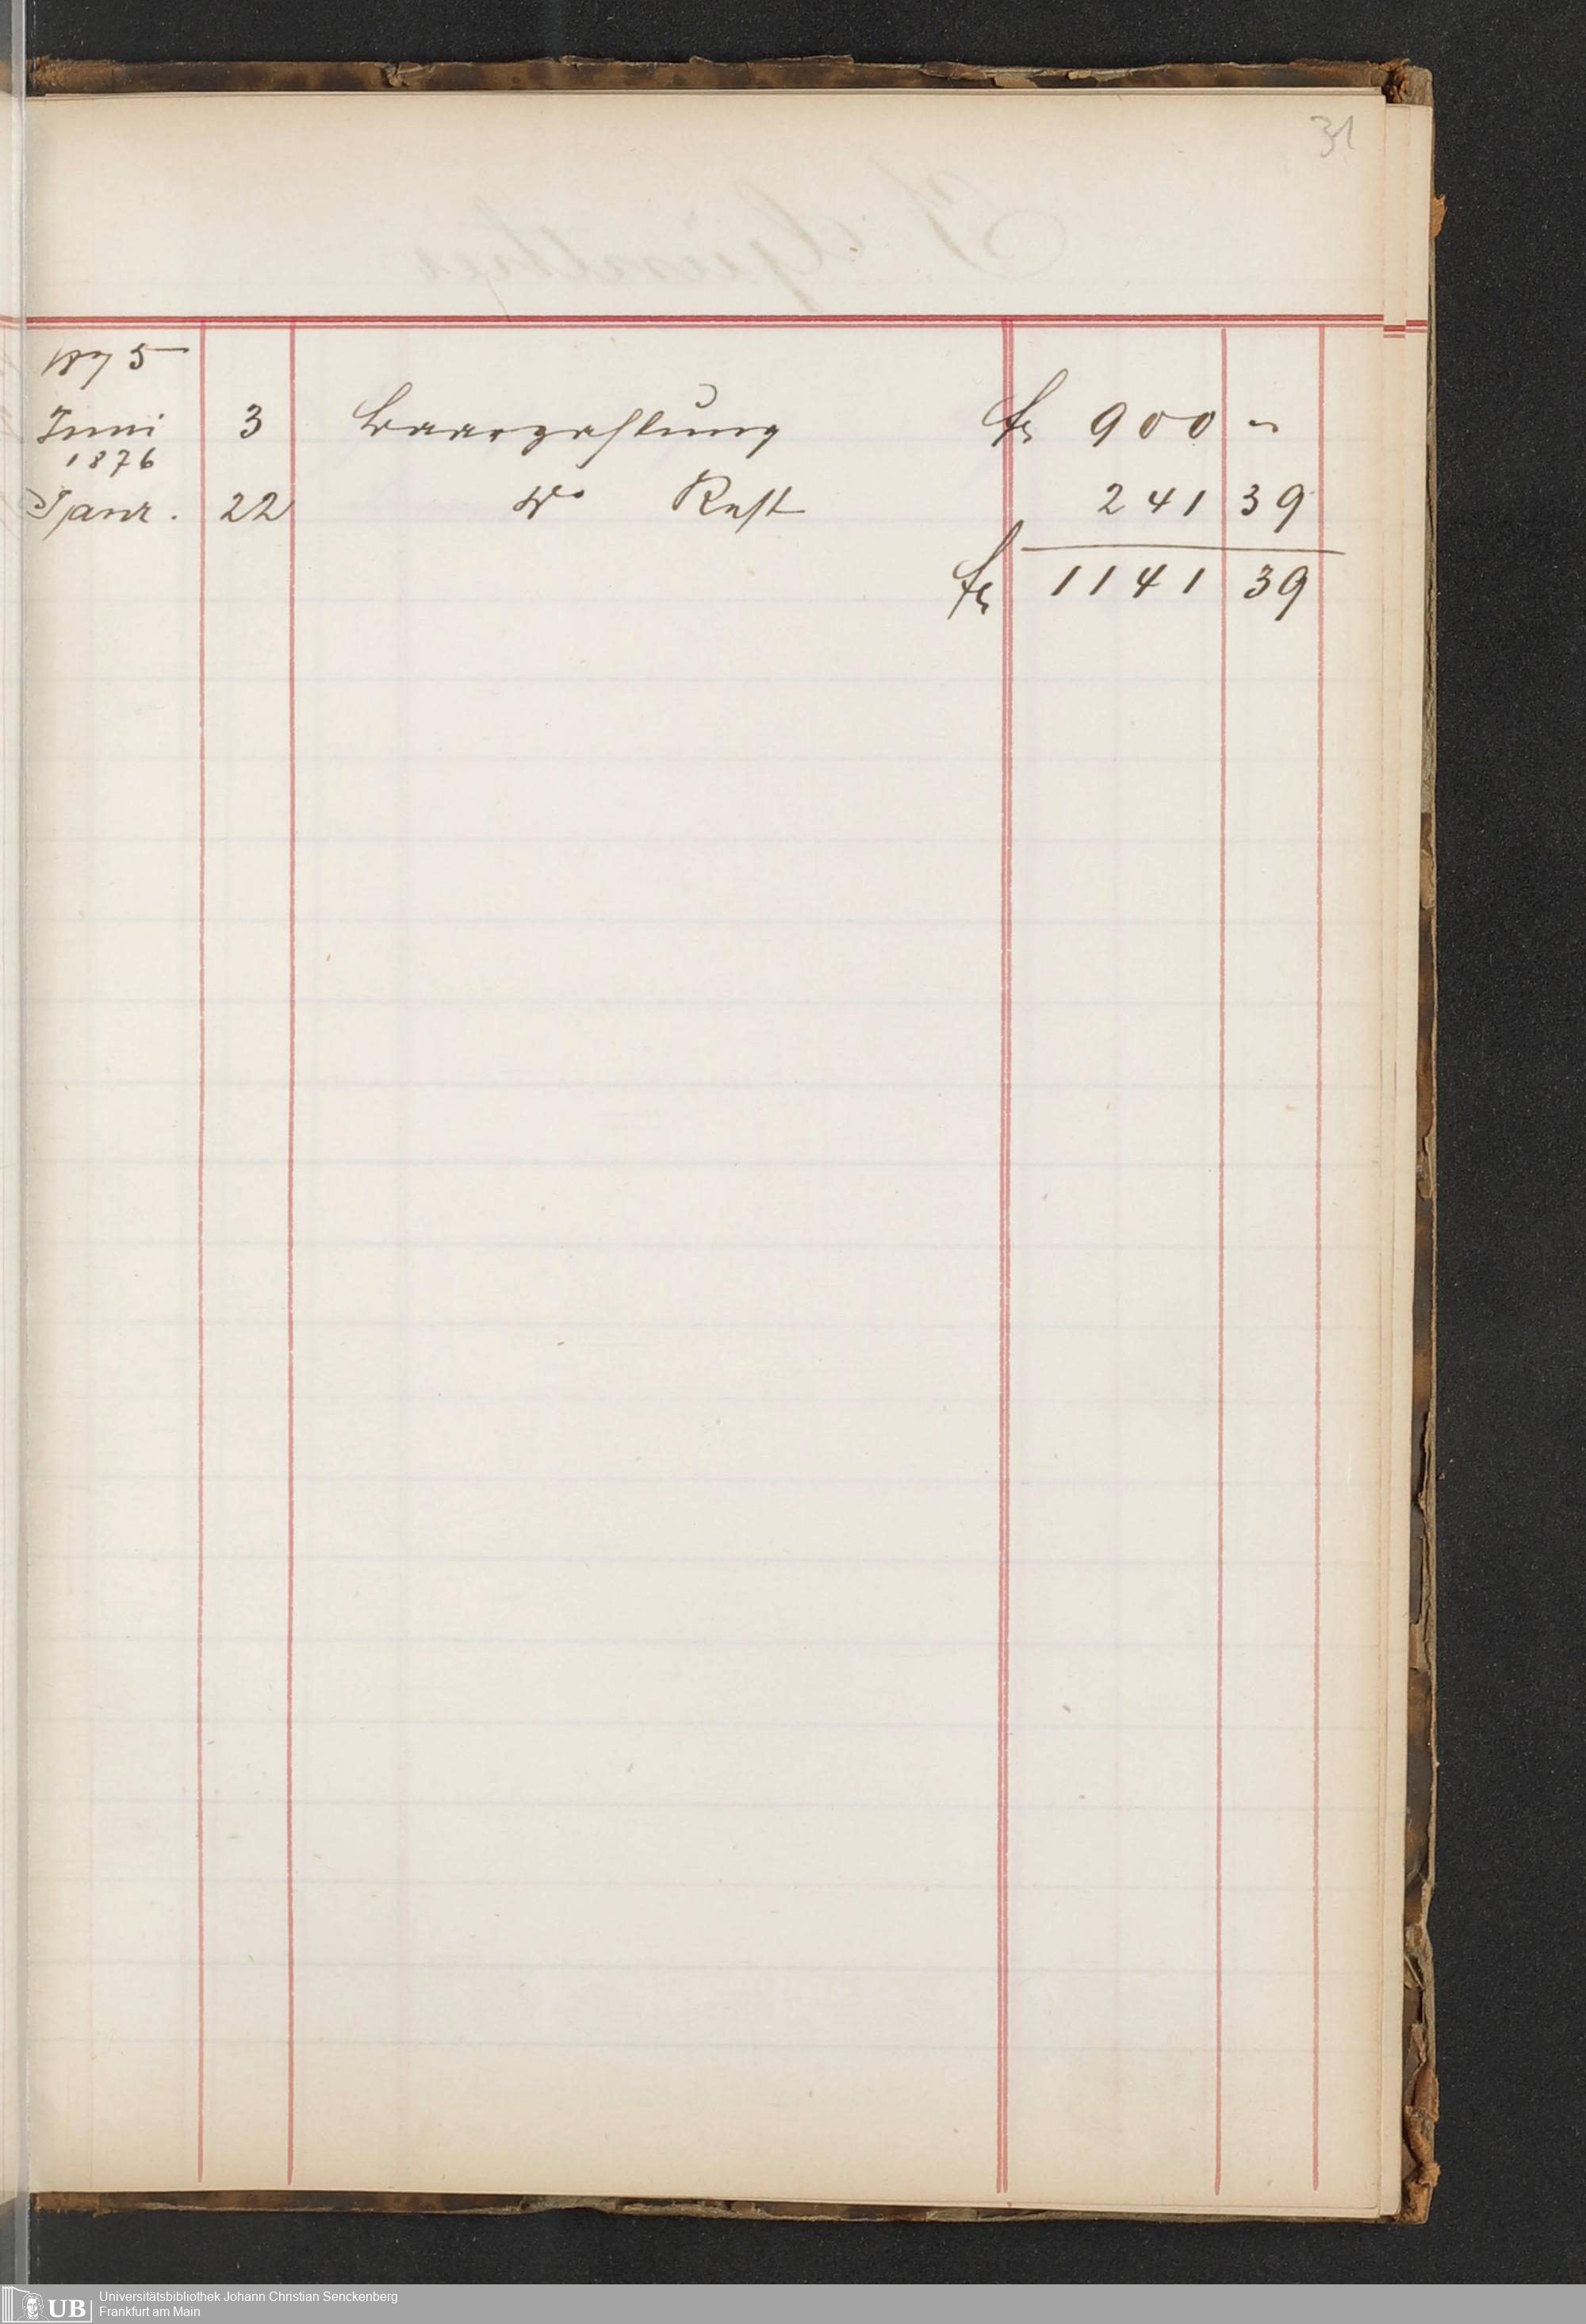 31
1875
Juni 3 Baarzahlung fr 900 -
1876
Janr. 22 do Rest 241 39
fr 1141 39
UB
Universitätsbibliothek Johann Christian Senckenberg
Frankfurt am Main